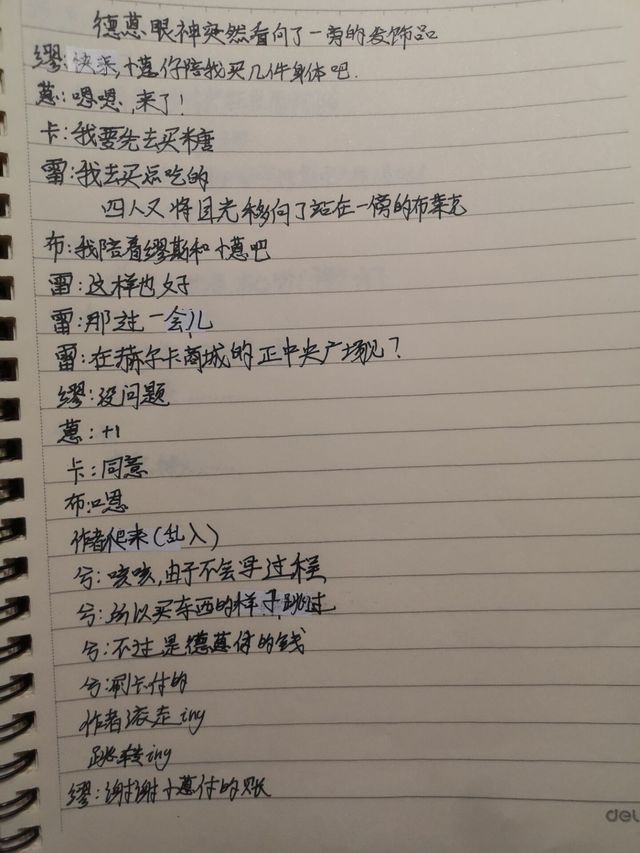 德蒽眼神突然看向了一旁的发饰品
缪:快来,小蒽仔陪我买几件身体吧.
蒽:嗯嗯,来了!
卡:我要先去买糖
雷:我去买点吃的
四人又将目光移向了站在一傍的布莱克
布:我陪着缪斯和小蒽吧
雷:这样也好
雷:那过一会儿
雷:在赫尔卡商城的正中央广场见?
缪:没问题
蒽:+1
卡:同意
布:嗯
作者爬来(乱入)
兮:咳咳,由于不会写过程
兮:所以买东西的样子跳过
兮:不过是德蒽付的钱
兮:刷卡付的
作者滚走ing
跳转ing
缪:谢谢小蒽付的账
del